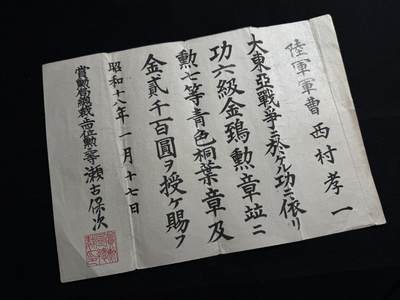 陸軍軍曹 西村孝一
大東亞戰爭ニ於ケル功ニ依リ
功六級金鵄勲章竝ニ
勲七等青色桐葉章及
金貳千百圓ヲ授ケ賜フ
昭和十八年一月十七日
賞勲局總裁正四位勲二等瀬古保次